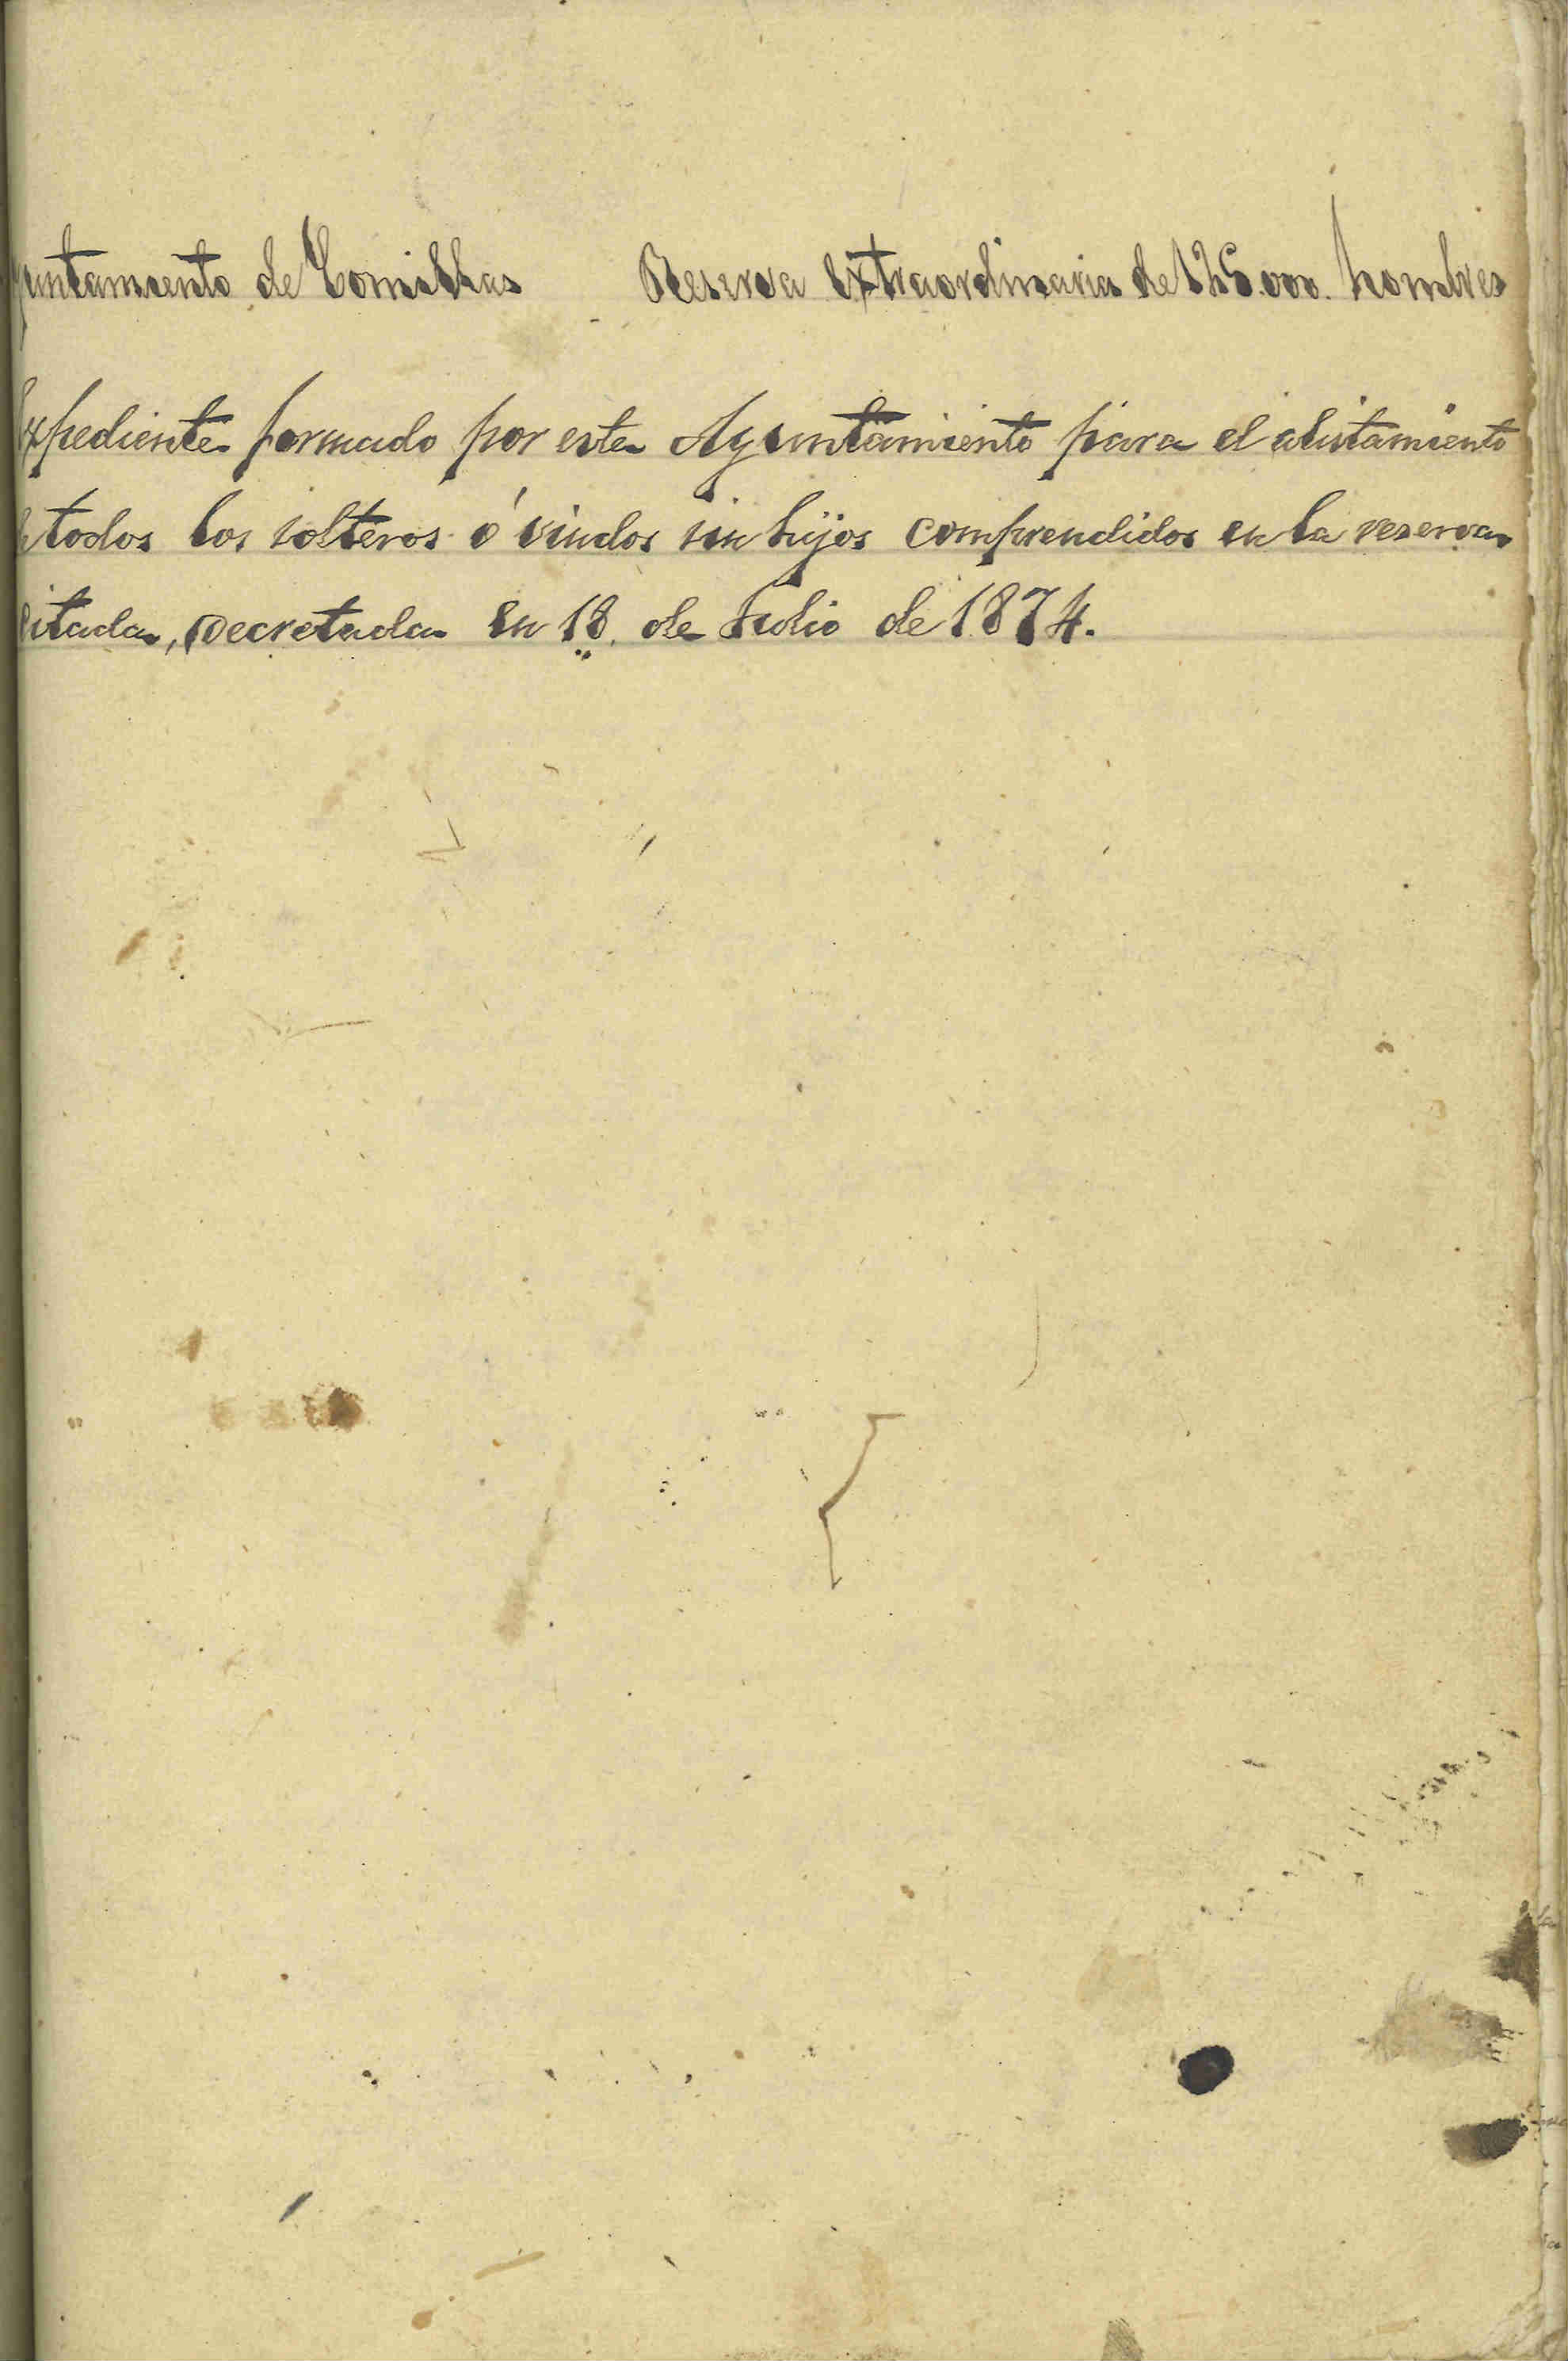 yuntamiento de Comillas Reserva extraordinaria de 125.000. hombres
Expediente formado por este Ayuntamiento para el alistamiento
de todos los solteros ó viudos sin hijos comprendidos en la reserva
citada, decretada en 18 de Julio de 1874.